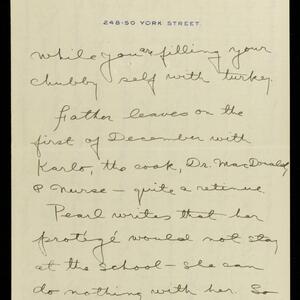 248-50 YORK STREET.
while you are filling your
chubby self with turkey.
Father leaves on the
first of December with
Karlo, the cook, Dr. MacDonald,
& Nurse — quite a retinue.
Pearl writes that her
protégé would not stay
at the school — she can
do nothing with her. So